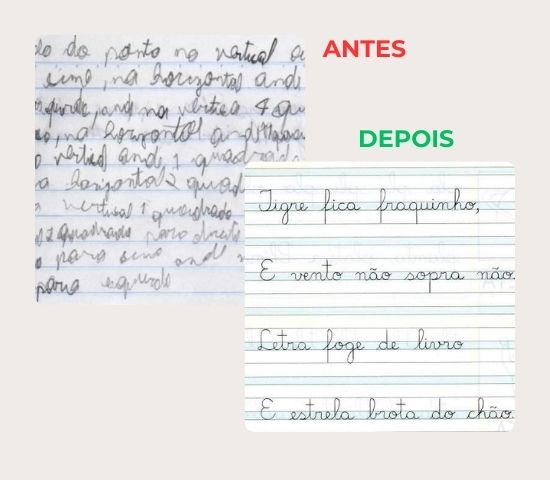 ANTES
do do ponto no vertical
cima, na horizontal and
and na vertica 4 qu
na horizontal and
vertical and 1 quadrado
horizontal 2 quad
vertical 1 quadrado
2 quadrado para direito
para cima and
para esquerdo
DEPOIS
Tigre fica fraquinho,
E vento não sopra não.
Letra foge de livro
E estrela brota do chão.